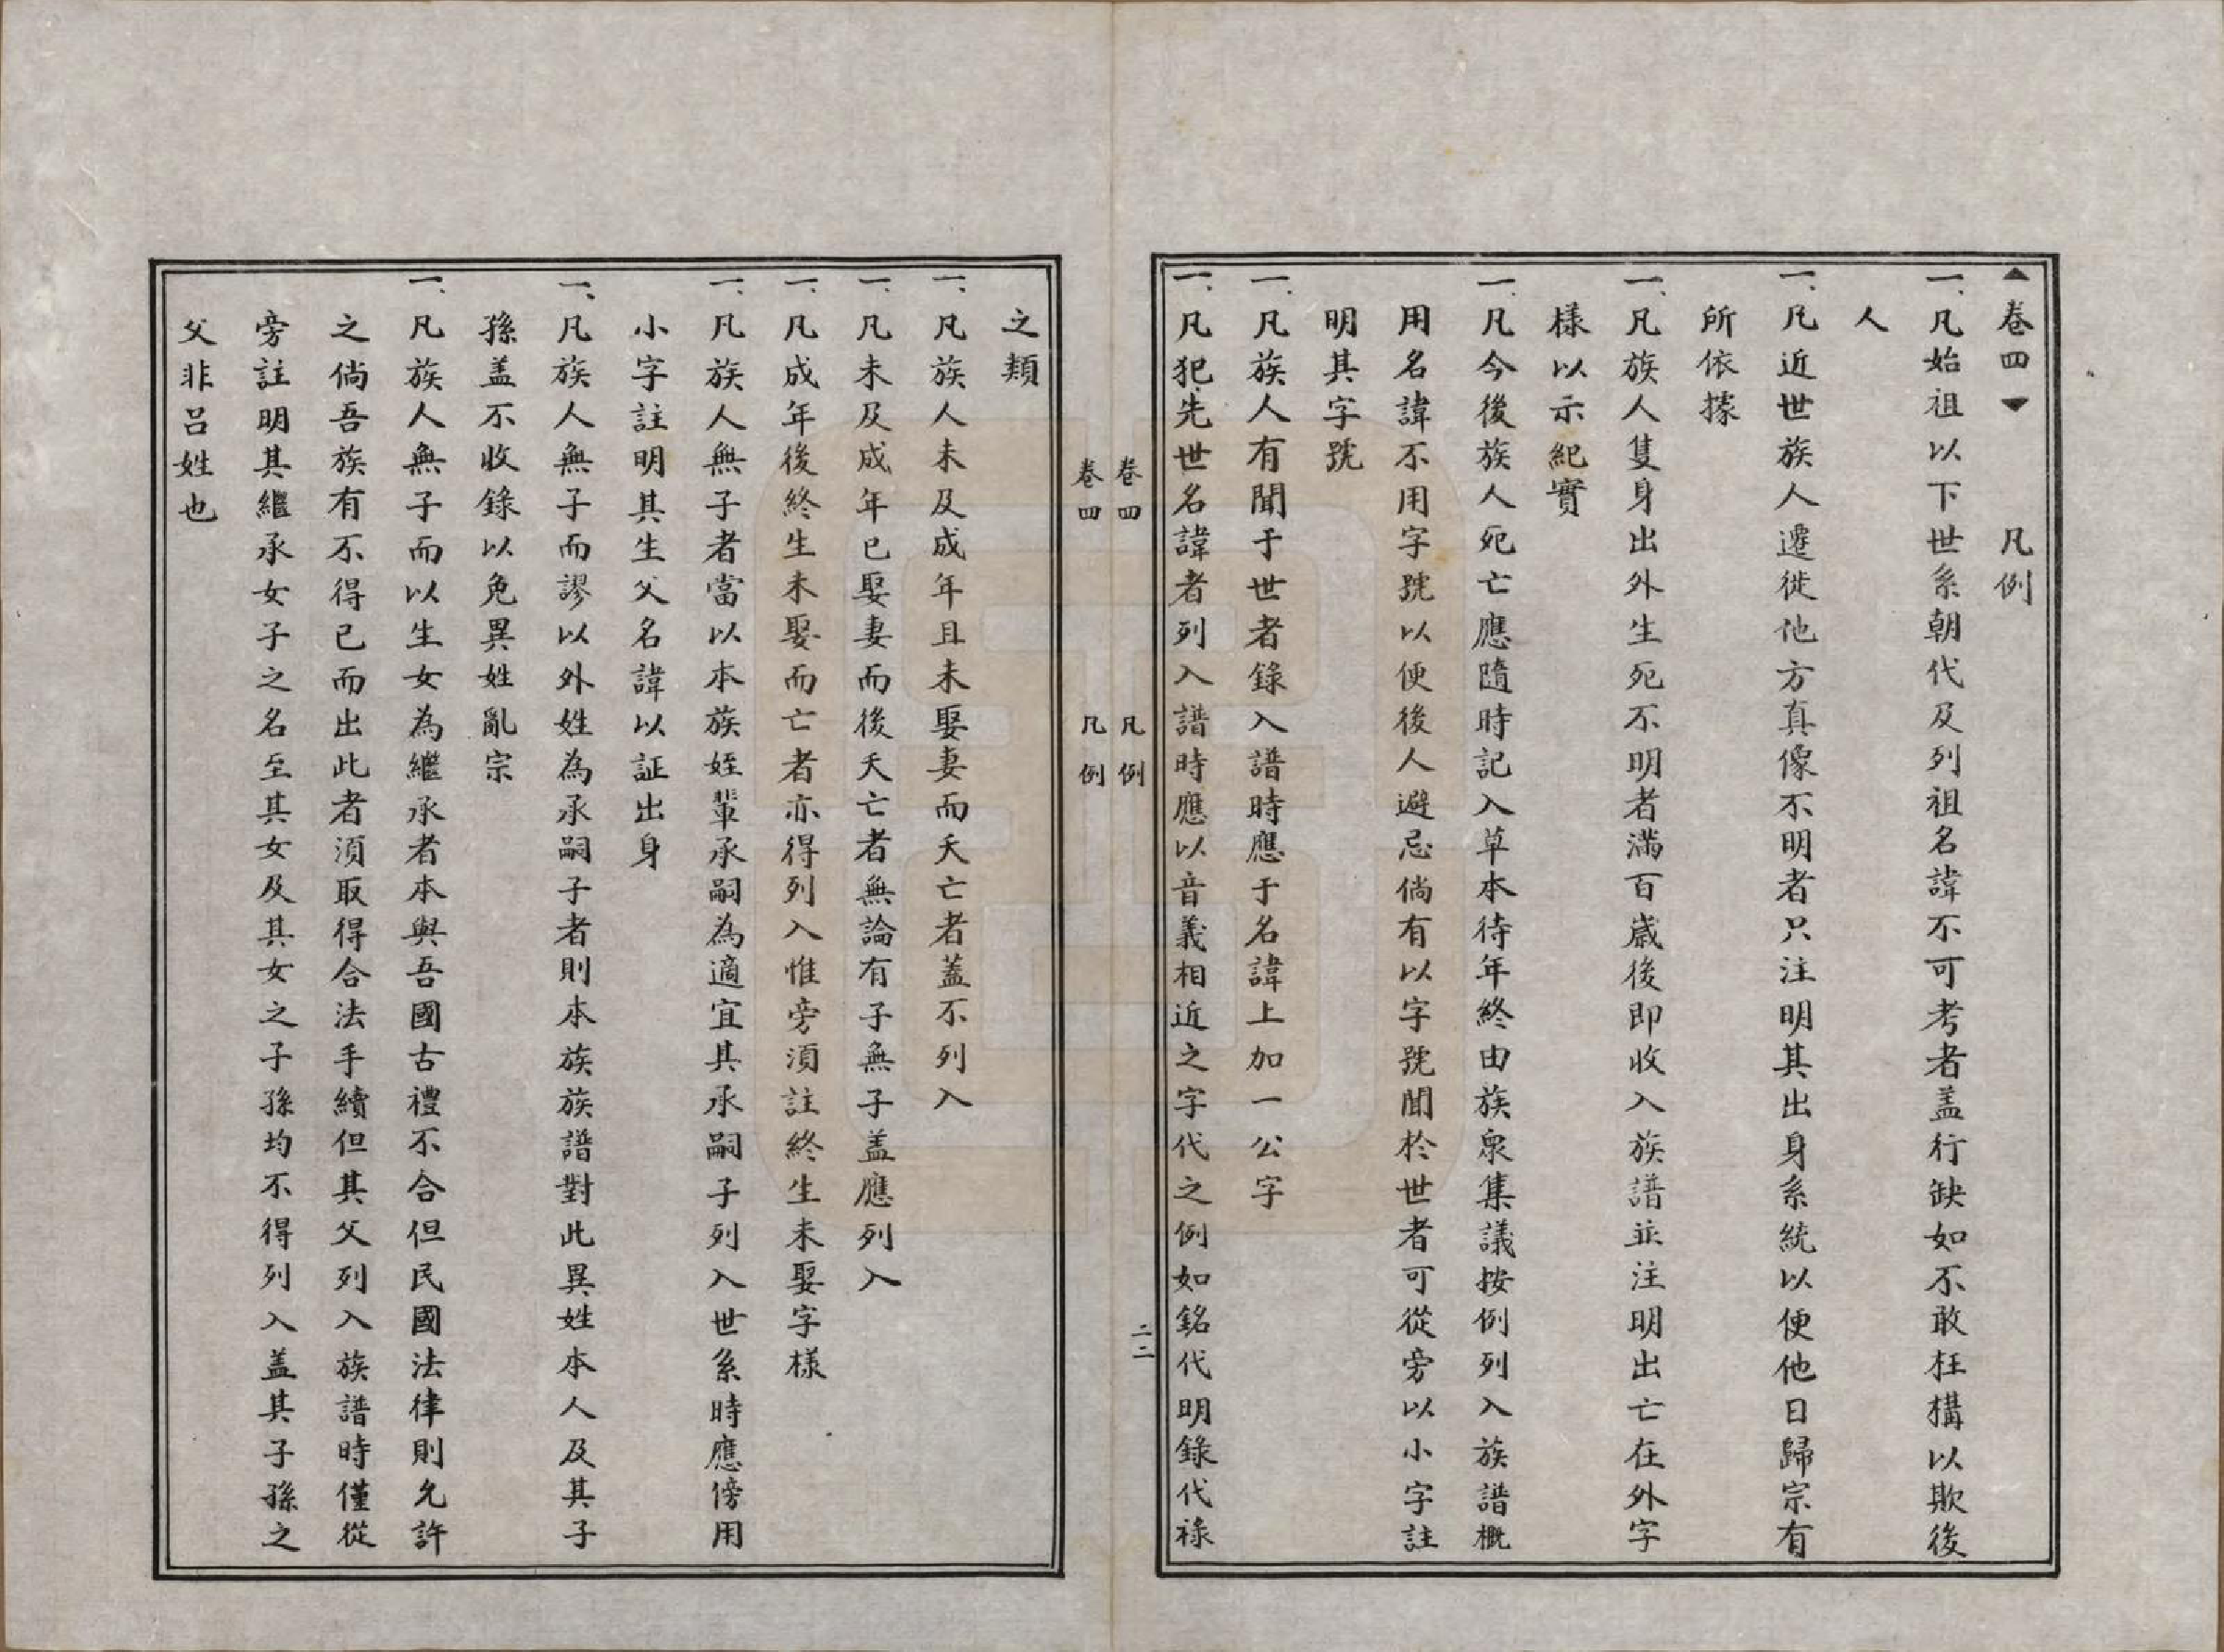 ▲卷四▼　凡例
一、凡始祖以下世系朝代及列祖名諱不可考者盖行缺如不敢枉構以欺後
人
一、凡近世族人遷徙他方真像不明者只注明其出身系統以便他日歸宗有
所依據
一、凡族人隻身出外生死不明者滿百歲後即收入族譜並注明出亡在外字
樣以示紀實
一、凡今後族人死亡應隨時記入草本待年終由族衆集議按例列入族譜概
用名諱不用字號以便後人避忌倘有以字號聞於世者可從旁以小字註
明其字號
一、凡族人有聞于世者錄入譜時應于名諱上加一公字
一、凡犯先世名諱者列入譜時應以音義相近之字代之例如銘代明錄代祿
卷四　凡例　二二
卷四　凡例
之類
一、凡族人未及成年且未娶妻而夭亡者蓋不列入
一、凡未及成年已娶妻而後夭亡者無論有子無子盖應列入
一、凡成年後終生未娶而亡者亦得列入惟旁須註終生未娶字樣
一、凡族人無子者當以本族姪輩承嗣為適宜其承嗣子列入世系時應傍用
小字註明其生父名諱以証出身
一、凡族人無子而謬以外姓為承嗣子者則本族族譜對此異姓本人及其子
孫盖不收錄以免異姓亂宗
一、凡族人無子而以生女為繼承者本與吾國古禮不合但民國法律則允許
之倘吾族有不得已而出此者須取得合法手續但其父列入族譜時僅從
旁註明其繼承女子之名至其女及其女之子孫均不得列入盖其子孫之
父非呂姓也